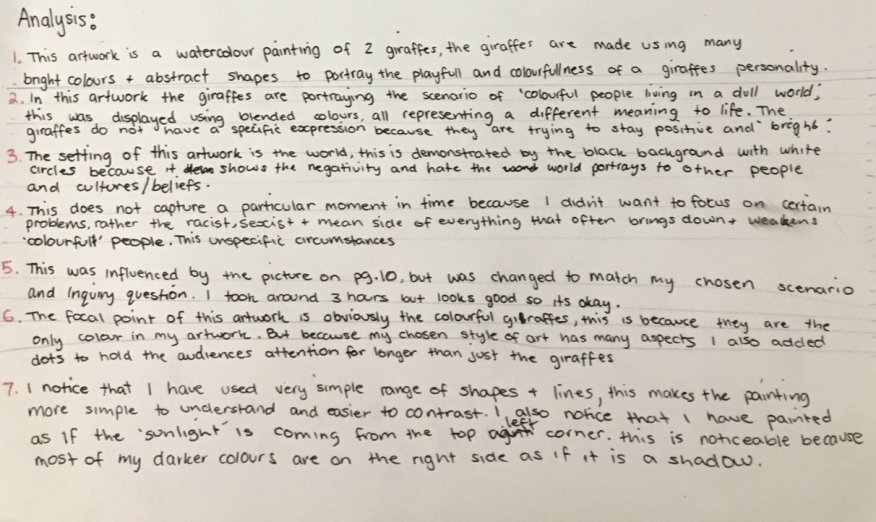 Analysis:
1. This artwork is a watercolour painting of 2 giraffes, the giraffes are made using many
bright colours + abstract shapes to portray the playfull and colourfullness of a giraffes personality.
2. In this artwork the giraffes are portraying the scenario of 'colourful people living in a dull world,'
this was displayed using blended colours, all representing a different meaning to life. The
giraffes do not have a specific expression because they are trying to stay positive and "bright".
3. The setting of this artwork is the world, this is demonstrated by the black background with white
circles because it shows the negativity and hate the world portrays to other people
and cultures/beliefs.
4. This does not capture a particular moment in time because I didn't want to focus on certain
problems, rather the racist, sexist + mean side of everything that often brings down + weakens
'colourfull' people. This unspecific circumstances
5. This was influenced by the picture on pg.10, but was changed to match my chosen scenario
and Inquiry question. I took around 3 hours but looks good so its okay.
6. The focal point of this artwork is obviously the colourful giraffes, this is because they are the
only colour in my artwork. But because my chosen style of art has many aspects I also added
dots to hold the audiences attention for longer than just the giraffes
7. I notice that I have used very simple range of shapes + lines, this makes the painting
more simple to understand and easier to contrast. I also notice that I have painted
as if the 'sunlight' is coming from the top left corner. this is noticeable because
most of my darker colours are on the right side as if it is a shadow.